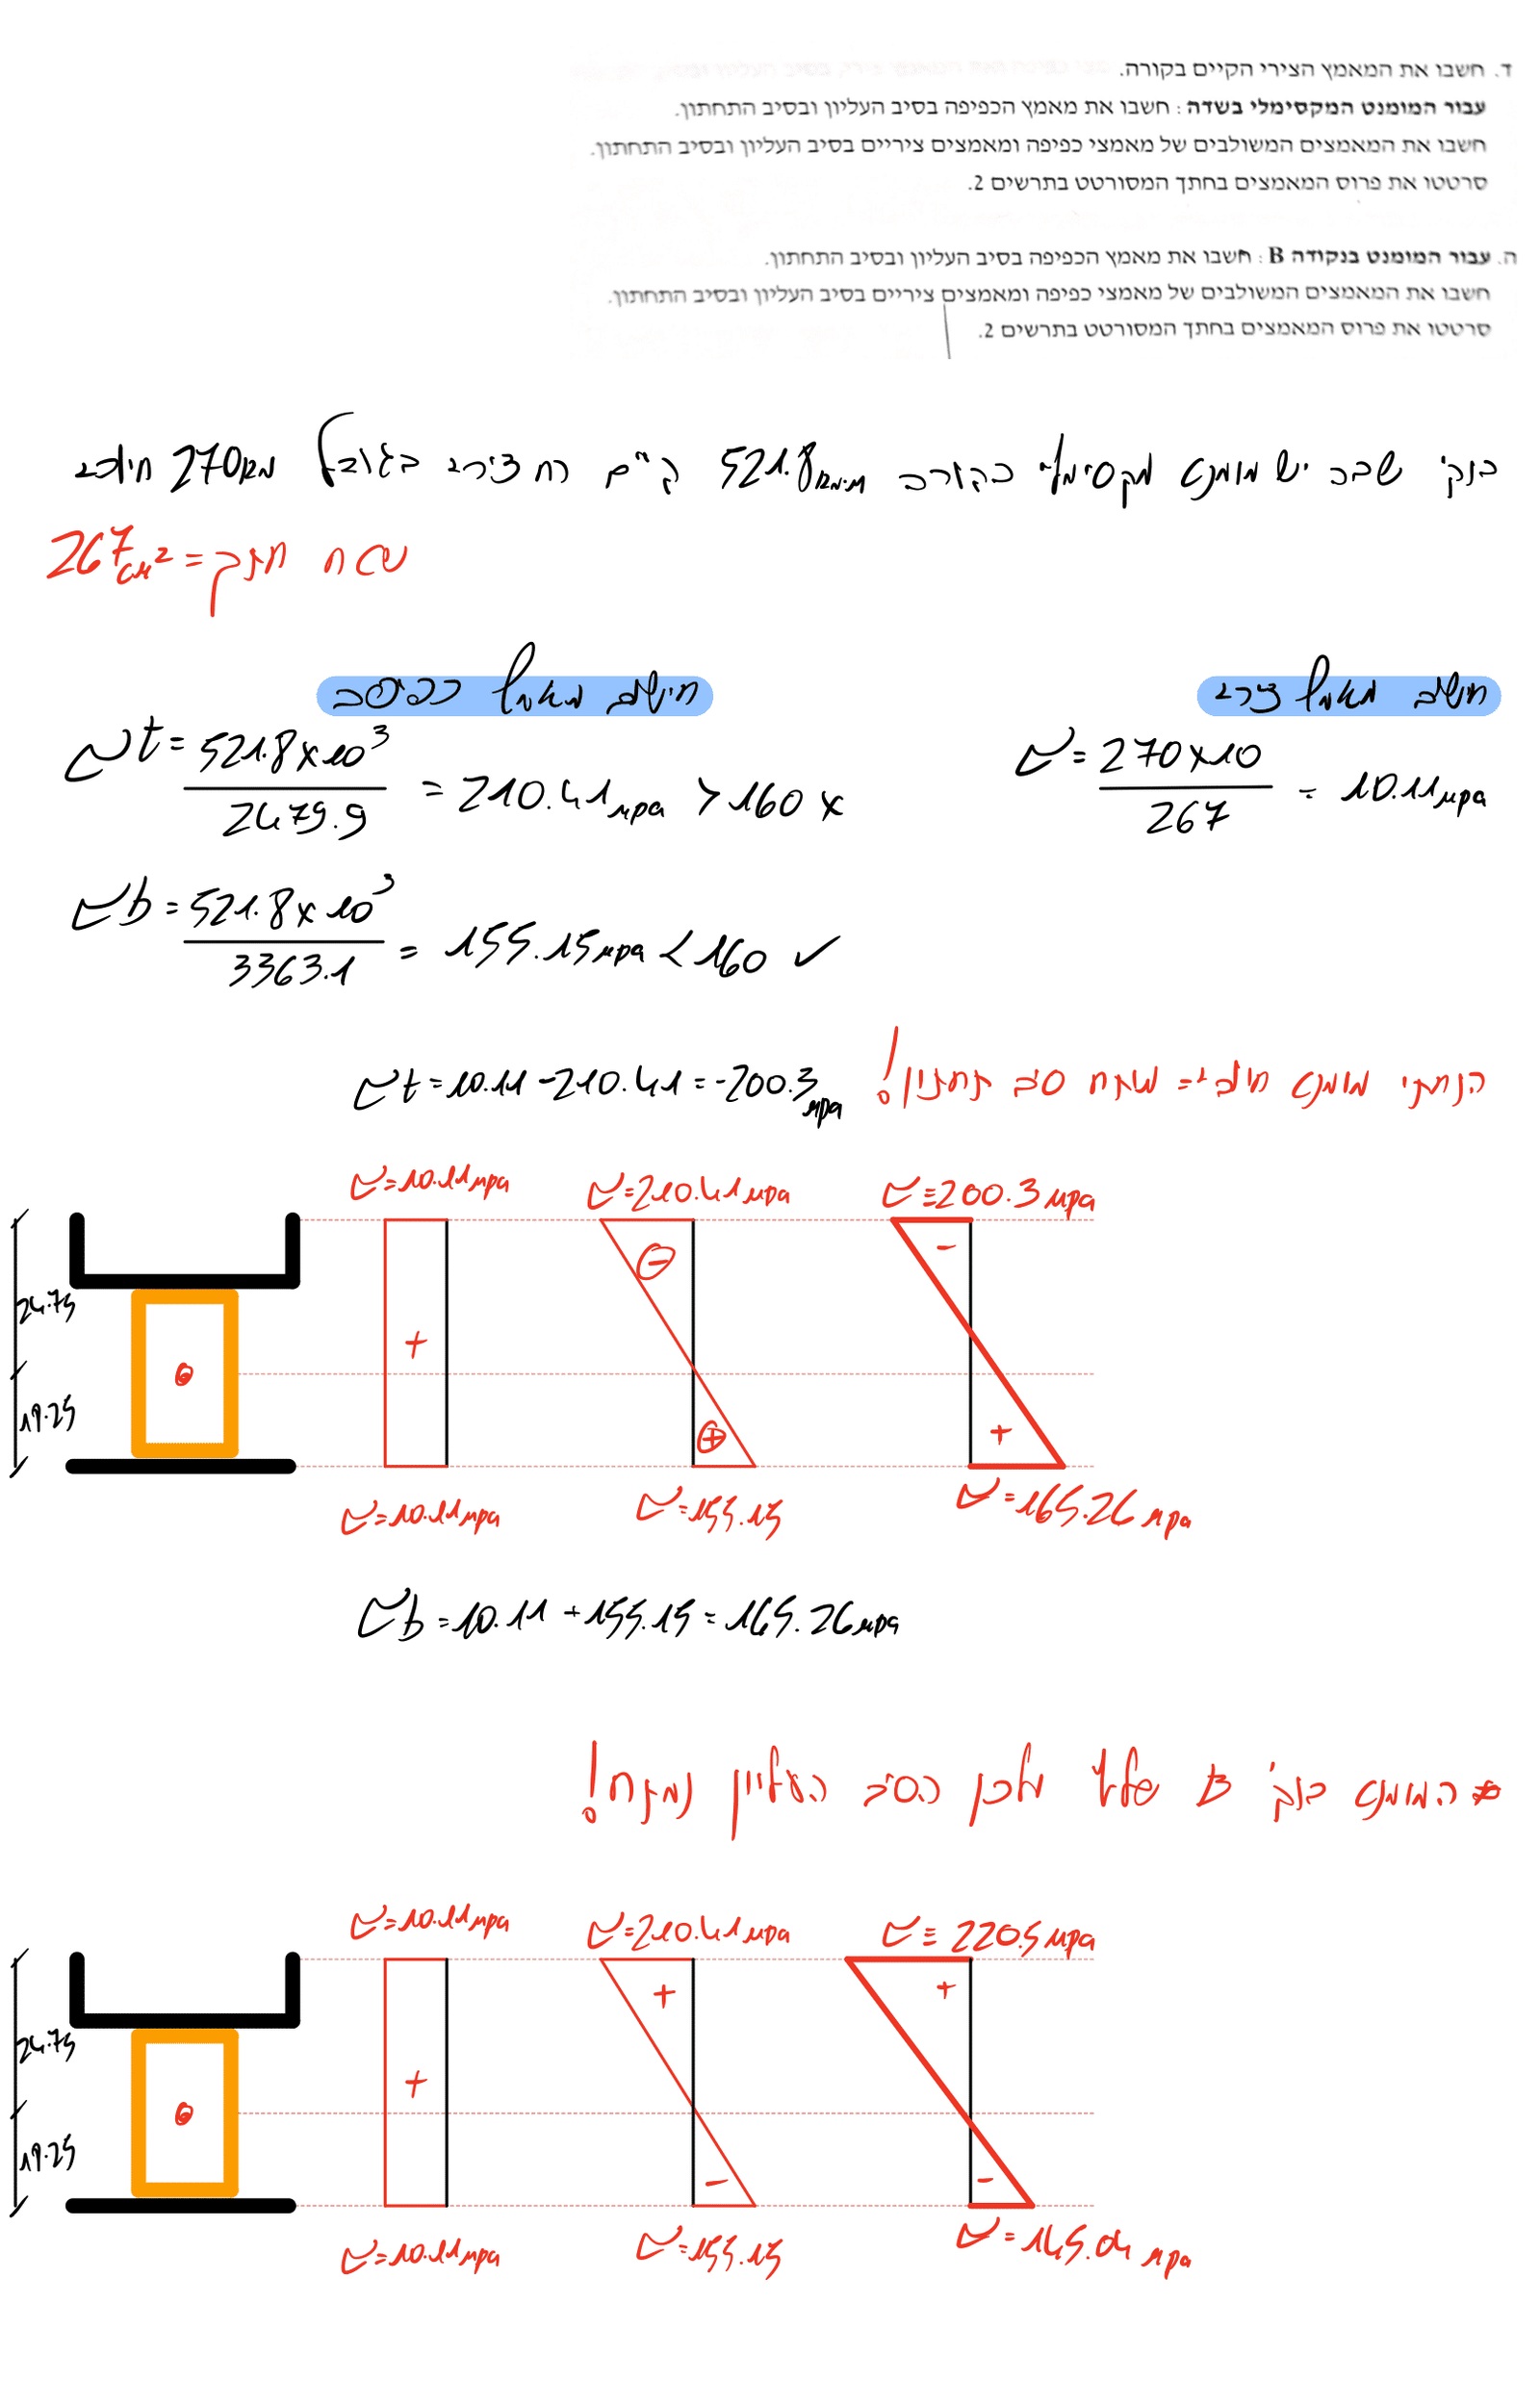 ד. חשבו את המאמץ הצירי הקיים בקורה.
עבור המומנט המקסימלי בשדה : חשבו את מאמץ הכפיפה בסיב העליון ובסיב התחתון.
חשבו את המאמצים המשולבים של מאמצי כפיפה ומאמצים ציריים בסיב העליון ובסיב התחתון.
סרטטו את פרוס המאמצים בחתך המסורטט בתרשים 2.
ה. עבור המומנט בנקודה B : חשבו את מאמץ הכפיפה בסיב העליון ובסיב התחתון.
חשבו את המאמצים המשולבים של מאמצי כפיפה ומאמצים ציריים בסיב העליון ובסיב התחתון.
סרטטו את פרוס המאמצים בחתך המסורטט בתרשים 2.
בנק' שבה יש מומנט מקסימלי 521.8 קיים כח צירי בגודל 270 חיובי
שטח חתך = 267 cm²
חישוב מאמץ צירי
σ = 270x10 / 267 = 10.11 mpa
חישוב מאמץ כפיפה
σt = 521.8x10³ / 2479.9 = 210.41 mpa > 160 x
σb = 521.8x10³ / 3363.1 = 155.15 mpa < 160 ✓
הנחתי מומנט חיובי = מתח סיב תחתון!
σt = 10.11 - 210.41 = -200.3 mpa
σ = 10.11 mpa
σ = 210.41 mpa
σ = 200.3 mpa
24.75
19.25
+
-
+
-
+
σ = 10.11 mpa
σ = 155.15
σ = 165.26 mpa
σb = 10.11 + 155.15 = 165.26 mpa
* המומנט בנק' B שלילי ולכן הסיב העליון נמתח!
σ = 10.11 mpa
σ = 210.41 mpa
σ = 220.5 mpa
24.75
19.25
+
+
-
+
-
σ = 10.11 mpa
σ = 155.15
σ = 145.04 mpa